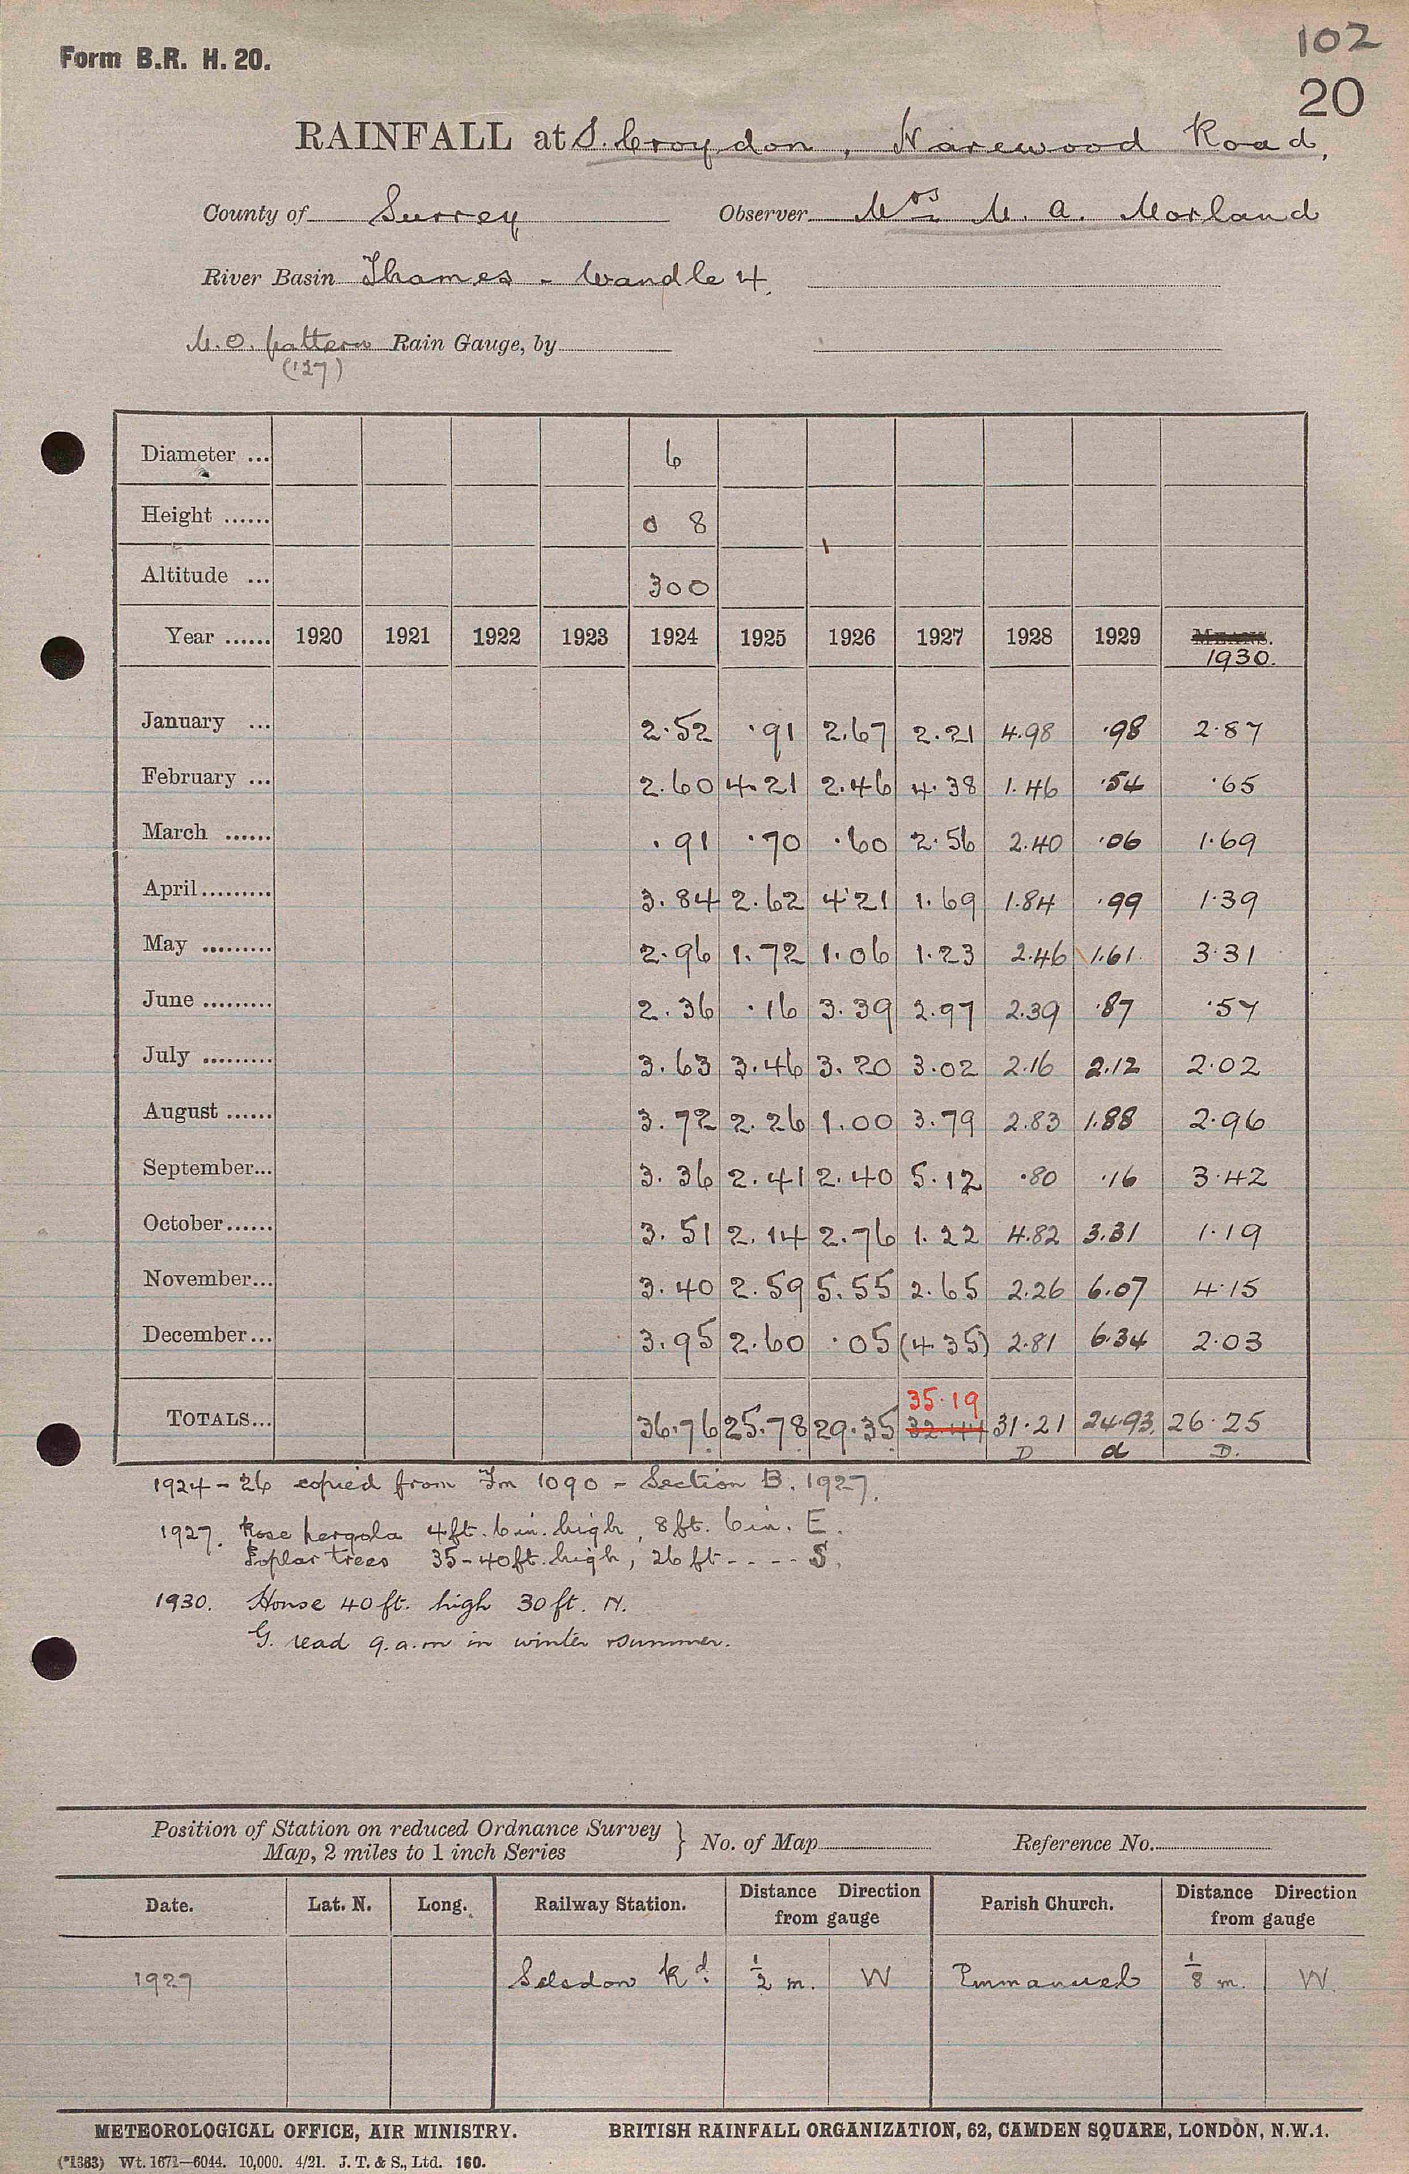 102
Form B.R. H. 20.
20
RAINFALL at S. Croydon, Harewood Road,
County of Surrey Observer Mrs M. A. Morland
River Basin Thames - Wandle 4.
M.O. pattern Rain Gauge, by
(127)
Diameter ... 6
Height ...... 0 8
Altitude ... 300
Year ...... 1920 1921 1922 1923 1924 1925 1926 1927 1928 1929 MEANS.
1930.
January ... 2.52 .91 2.67 2.21 4.98 .98 2.87
February ... 2.60 4.21 2.46 4.38 1.46 .54 .65
March ...... .91 .70 .60 2.56 2.40 .06 1.69
April ......... 3.84 2.62 4.21 1.69 1.84 .99 1.39
May ......... 2.96 1.72 1.06 1.23 2.46 1.61 3.31
June ......... 2.36 .16 3.39 2.97 2.39 .87 .57
July ......... 3.63 3.46 3.20 3.02 2.16 2.12 2.02
August ...... 3.72 2.26 1.00 3.79 2.83 1.88 2.96
September... 3.36 2.41 2.40 5.12 .80 .16 3.42
October...... 3.51 2.14 2.76 1.22 4.82 3.31 1.19
November... 3.40 2.59 5.55 2.65 2.26 6.07 4.15
December... 3.95 2.60 .05 (4.35) 2.81 6.34 2.03
35.19
TOTALS... 36.76 25.78 29.35 32.44 31.21 24.93. 26.25
D d D.
1924-26 copied from Fm 1090 - Section B. 1927.
1927. Rose pergola 4ft. 6in. high, 8ft. 6in. E.
Poplar trees 35-40ft. high, 26ft - - - - S.
1930. House 40ft. high 30ft. N.
G. read 9.a.m in winter & summer.
Position of Station on reduced Ordnance Survey
Map, 2 miles to 1 inch Series } No. of Map Reference No.
Date. Lat. N. Long. Railway Station. Distance Direction from gauge Parish Church. Distance Direction from gauge
1927 Selsdon Rd. 1/2 m. W Emmanuel 1/8 m. W.
METEOROLOGICAL OFFICE, AIR MINISTRY. BRITISH RAINFALL ORGANIZATION, 62, CAMDEN SQUARE, LONDON, N.W.1.
(*1383) Wt. 1671—6044. 10,000. 4/21. J. T. & S., Ltd. 160.